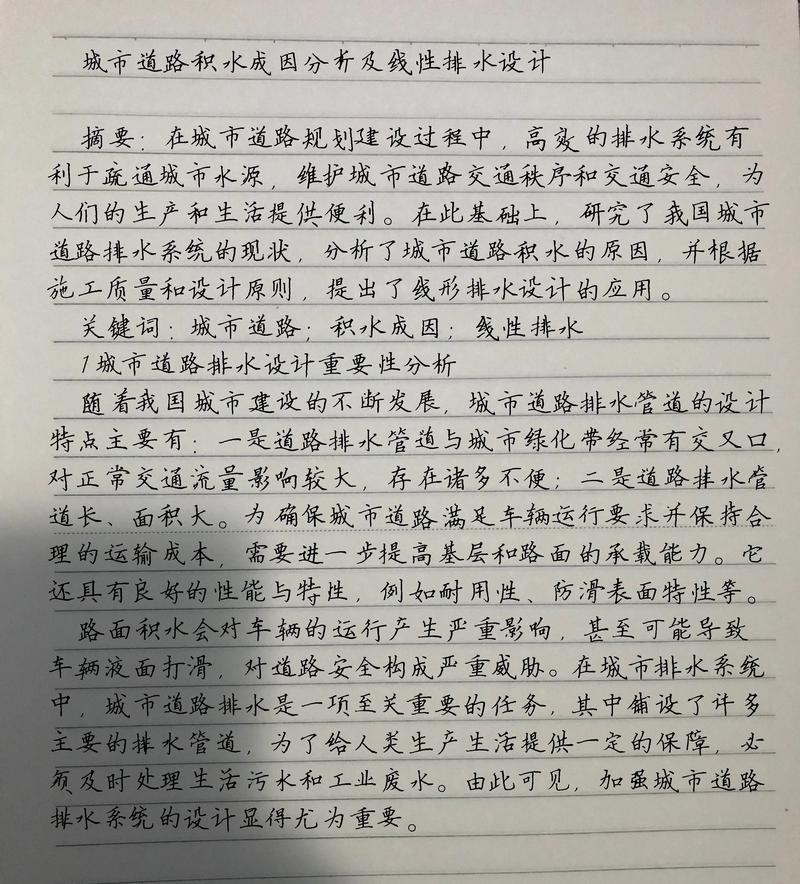 城市道路积水成因分析及线性排水设计
摘要：在城市道路规划建设过程中，高效的排水系统有
利于疏通城市水源，维护城市道路交通秩序和交通安全，为
人们的生产和生活提供便利。在此基础上，研究了我国城市
道路排水系统的现状，分析了城市道路积水的原因，并根据
施工质量和设计原则，提出了线形排水设计的应用。
关键词：城市道路；积水成因；线性排水
1城市道路排水设计重要性分析
随着我国城市建设的不断发展，城市道路排水管道的设计
特点主要有：一是道路排水管道与城市绿化带经常有交叉口，
对正常交通流量影响较大，存在诸多不便；二是道路排水管
道长、面积大。为确保城市道路满足车辆运行要求并保持合
理的运输成本，需要进一步提高基层和路面的承载能力。它
还具有良好的性能与特性，例如耐用性、防滑表面特性等。
路面积水会对车辆的运行产生严重影响，甚至可能导致
车辆液面打滑，对道路安全构成严重威胁。在城市排水系统
中，城市道路排水是一项至关重要的任务，其中铺设了许多
主要的排水管道，为了给人类生产生活提供一定的保障，必
须及时处理生活污水和工业废水。由此可见，加强城市道路
排水系统的设计显得尤为重要。